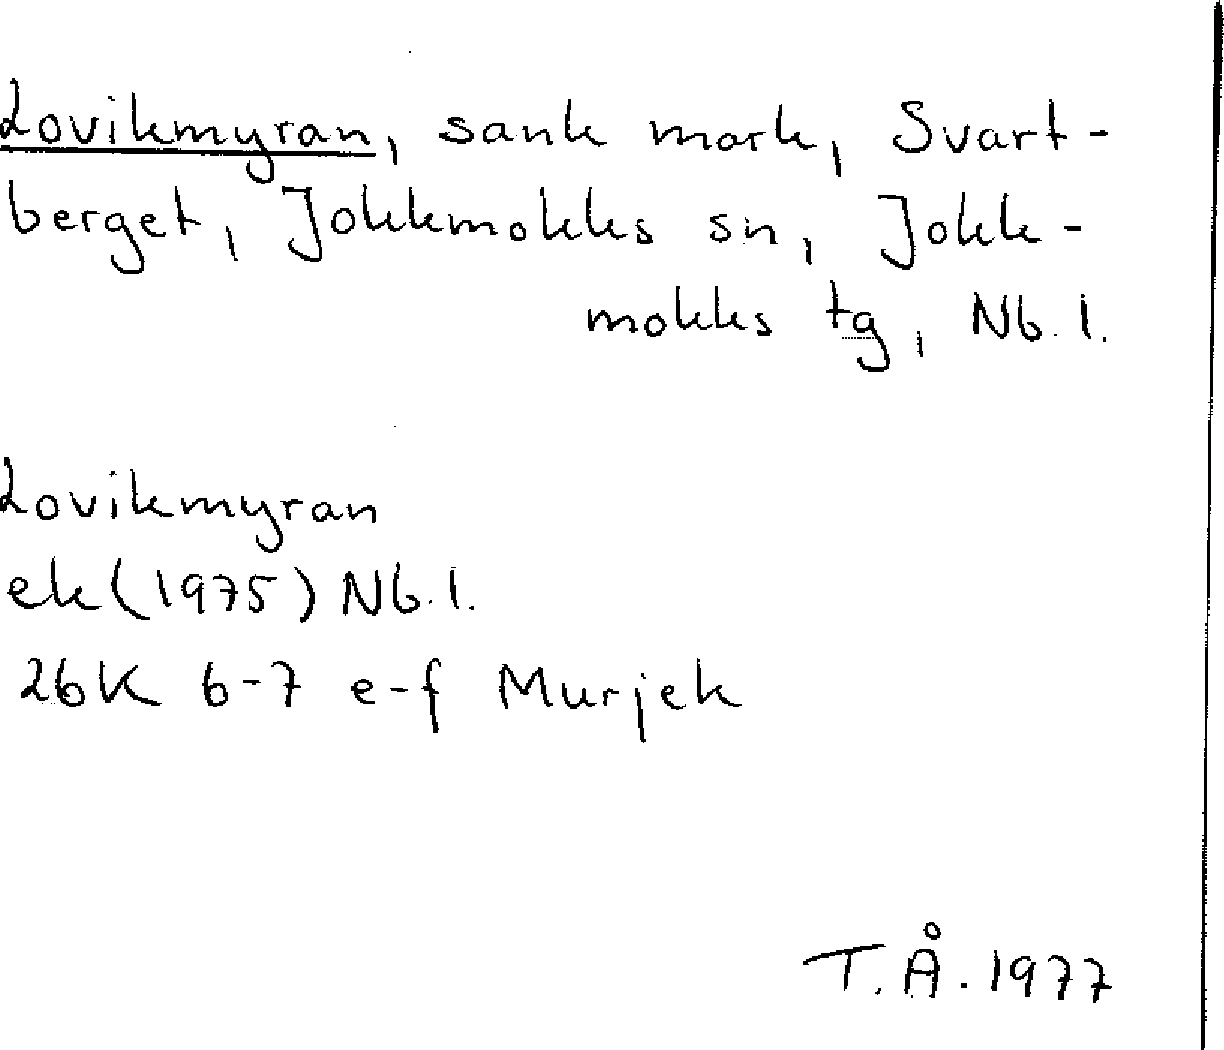 Lovikmyran, sank mark, Svart-
berget, Jokkmokks sn, Jokk-
mokks tg, Nb. l.
Lovikmyran
ek (1975) Nb. l.
26K 6-7 e-f Murjek
T. Å. 1977